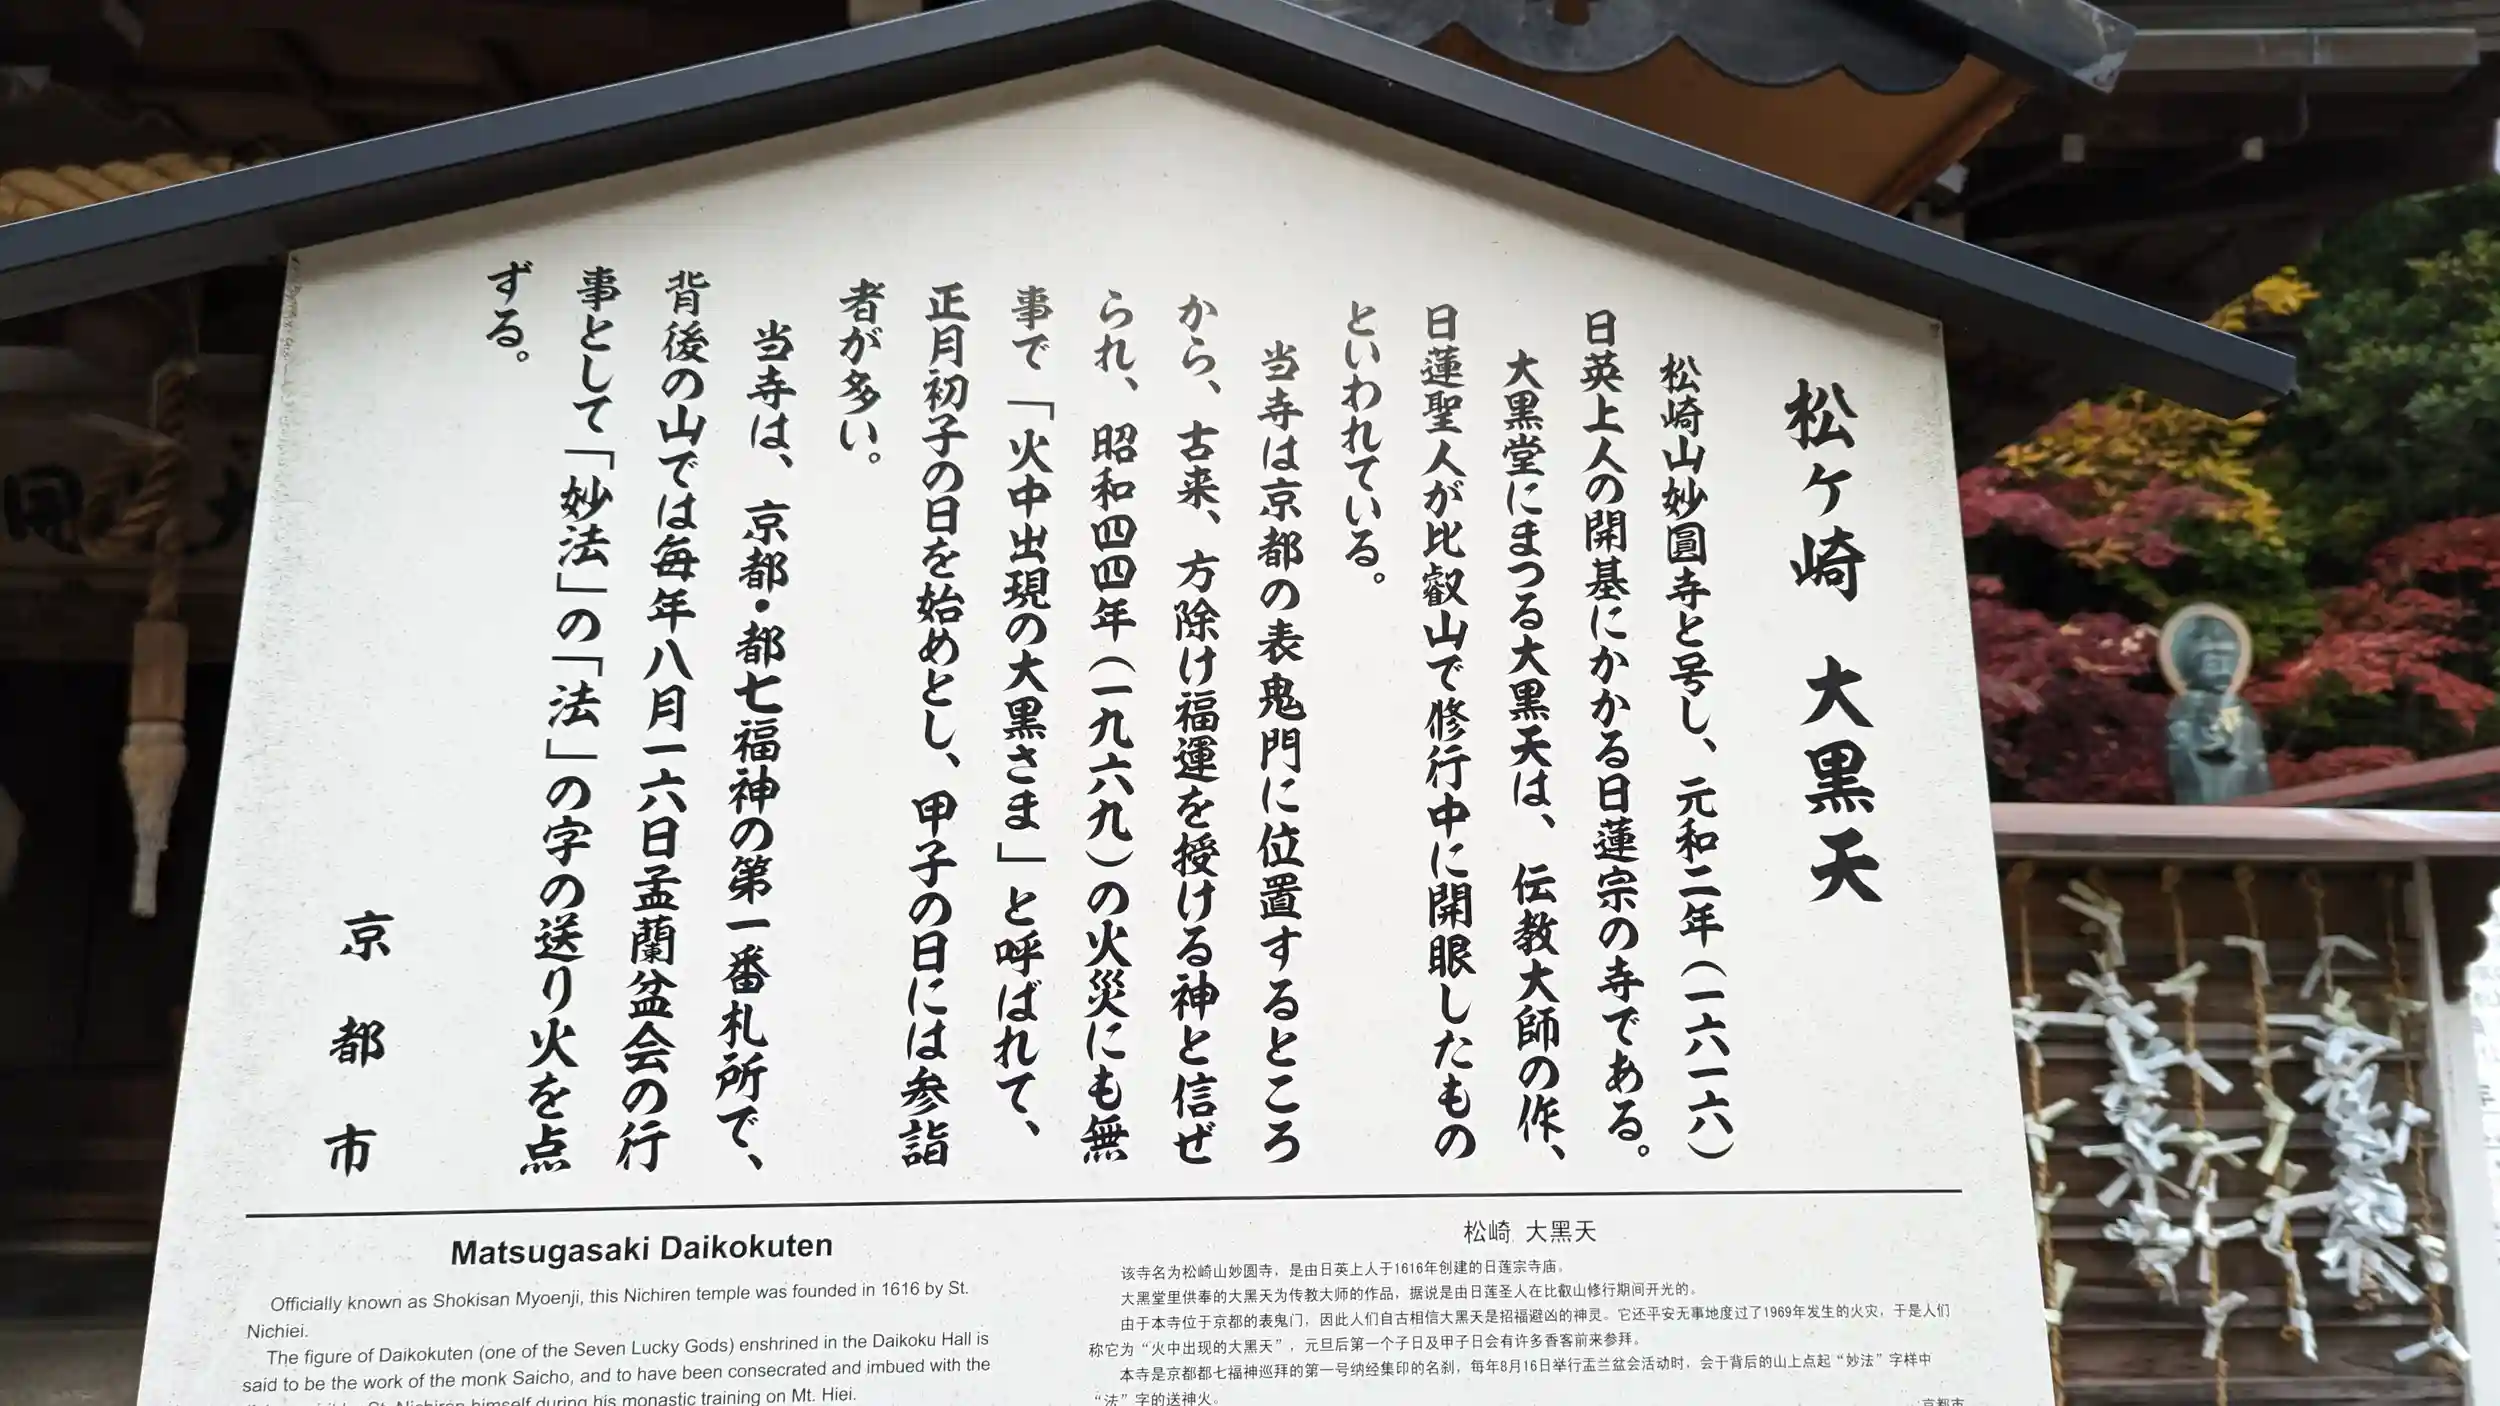 松ケ崎 大黒天
松崎山妙圓寺と号し、元和二年（一六一六）
日英上人の開基にかかる日蓮宗の寺である。
大黒堂にまつる大黒天は、伝教大師の作、
日蓮聖人が比叡山で修行中に開眼したもの
といわれている。
当寺は京都の表鬼門に位置するところ
から、古来、方除け福運を授ける神と信ぜ
られ、昭和四四年（一九六九）の火災にも無
事で「火中出現の大黒さま」と呼ばれて、
正月初子の日を始めとし、甲子の日には参詣
者が多い。
当寺は、京都・都七福神の第一番札所で、
背後の山では毎年八月一六日盂蘭盆会の行
事として「妙法」の「法」の字の送り火を点
ずる。
京都市
Matsugasaki Daikokuten
Officially known as Shokisan Myoenji, this Nichiren temple was founded in 1616 by St.
Nichiei.
The figure of Daikokuten (one of the Seven Lucky Gods) enshrined in the Daikoku Hall is
said to be the work of the monk Saicho, and to have been consecrated and imbued with the
St. Nichiren himself during his monastic training on Mt. Hiei.
松崎 大黑天
该寺名为松崎山妙圆寺，是由日英上人于1616年创建的日莲宗寺庙。
大黑堂里供奉的大黑天为传教大师的作品，据说是由日莲圣人在比叡山修行期间开光的。
由于本寺位于京都的表鬼门，因此人们自古相信大黑天是招福避凶的神灵。它还平安无事地度过了1969年发生的火灾，于是人们
称它为“火中出现的大黑天”，元旦后第一个子日及甲子日会有许多香客前来参拜。
本寺是京都都七福神巡拜的第一号纳经集印的名刹，每年8月16日举行盂兰盆会活动时，会于背后的山上点起“妙法”字样中
“法”字的送神火。
京都市